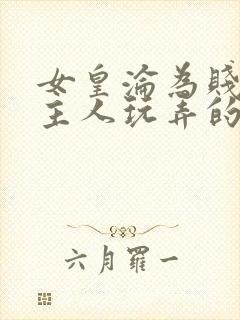 女皇淪為賤
主人玩弄的
六月羅一